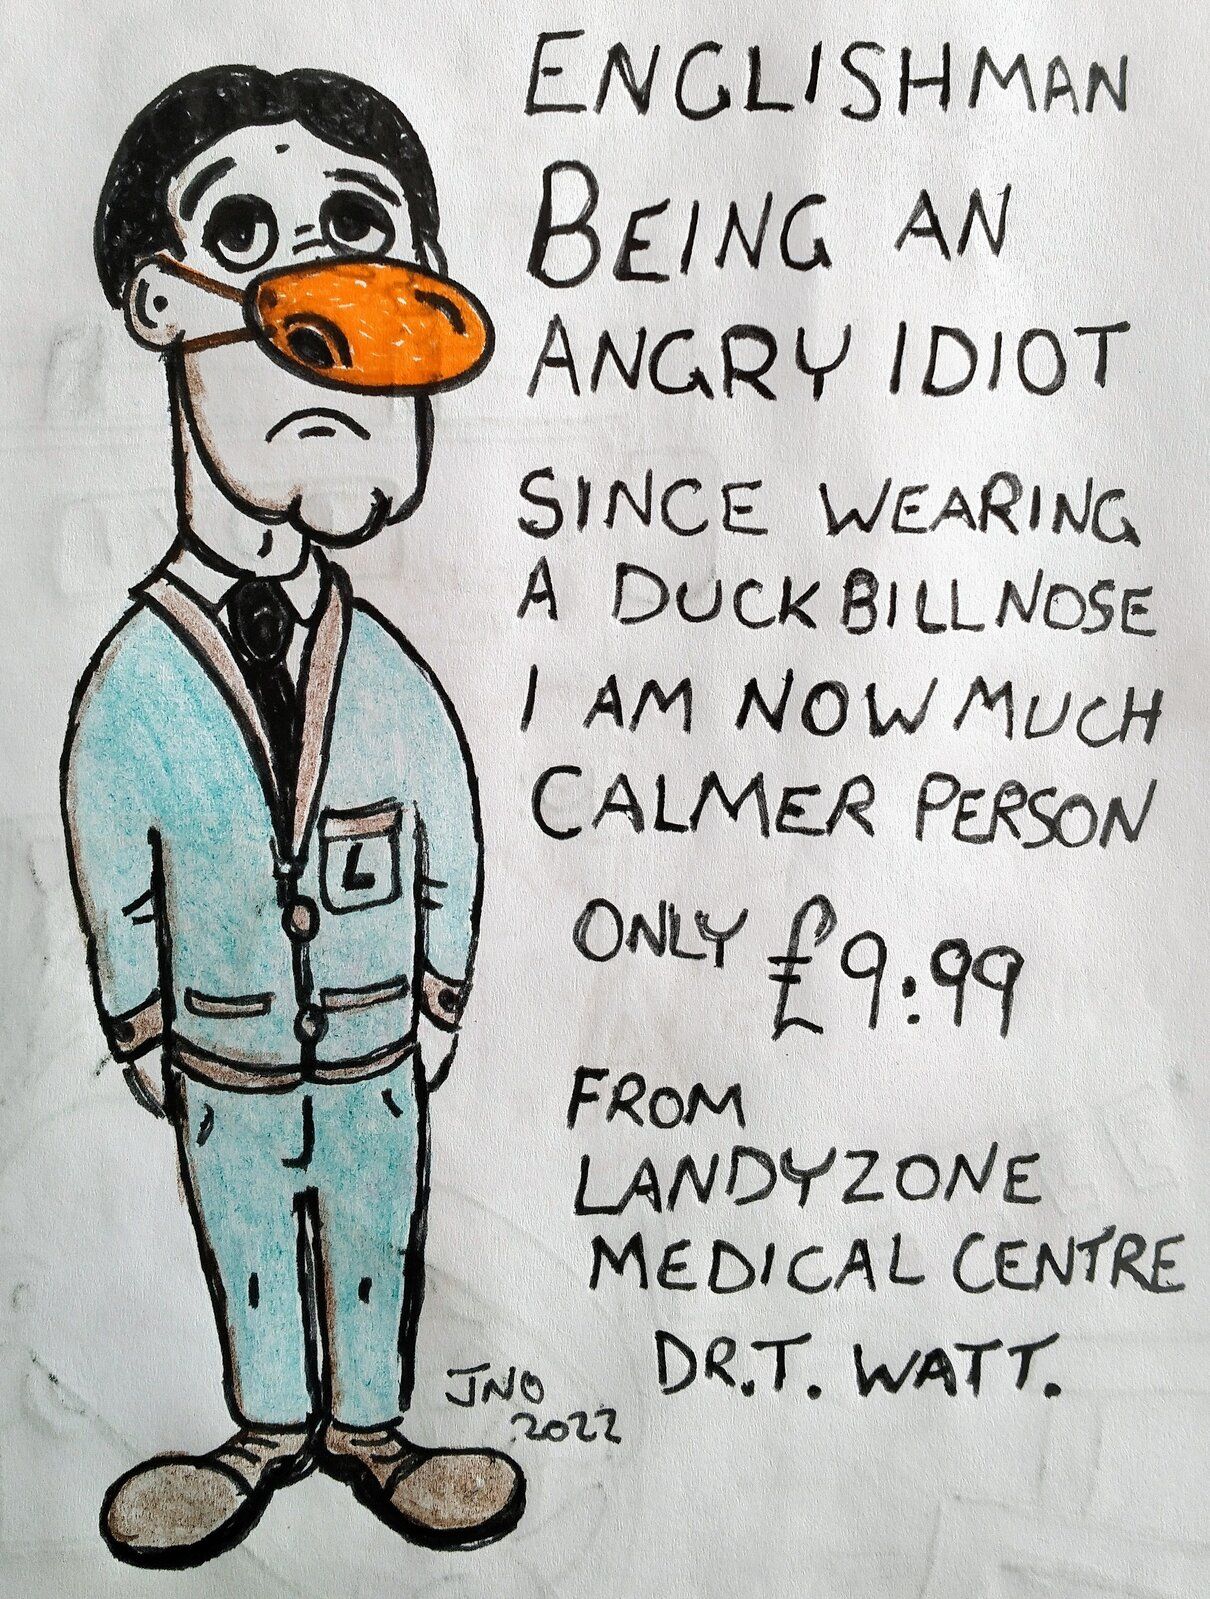 ENGLISHMAN
BEING AN
ANGRY IDIOT
SINCE WEARING
A DUCK BILL NOSE
I AM NOW MUCH
CALMER PERSON
ONLY £9.99
FROM
LANDYZONE
MEDICAL CENTRE
DR.T. WATT.
L
JNO
2022